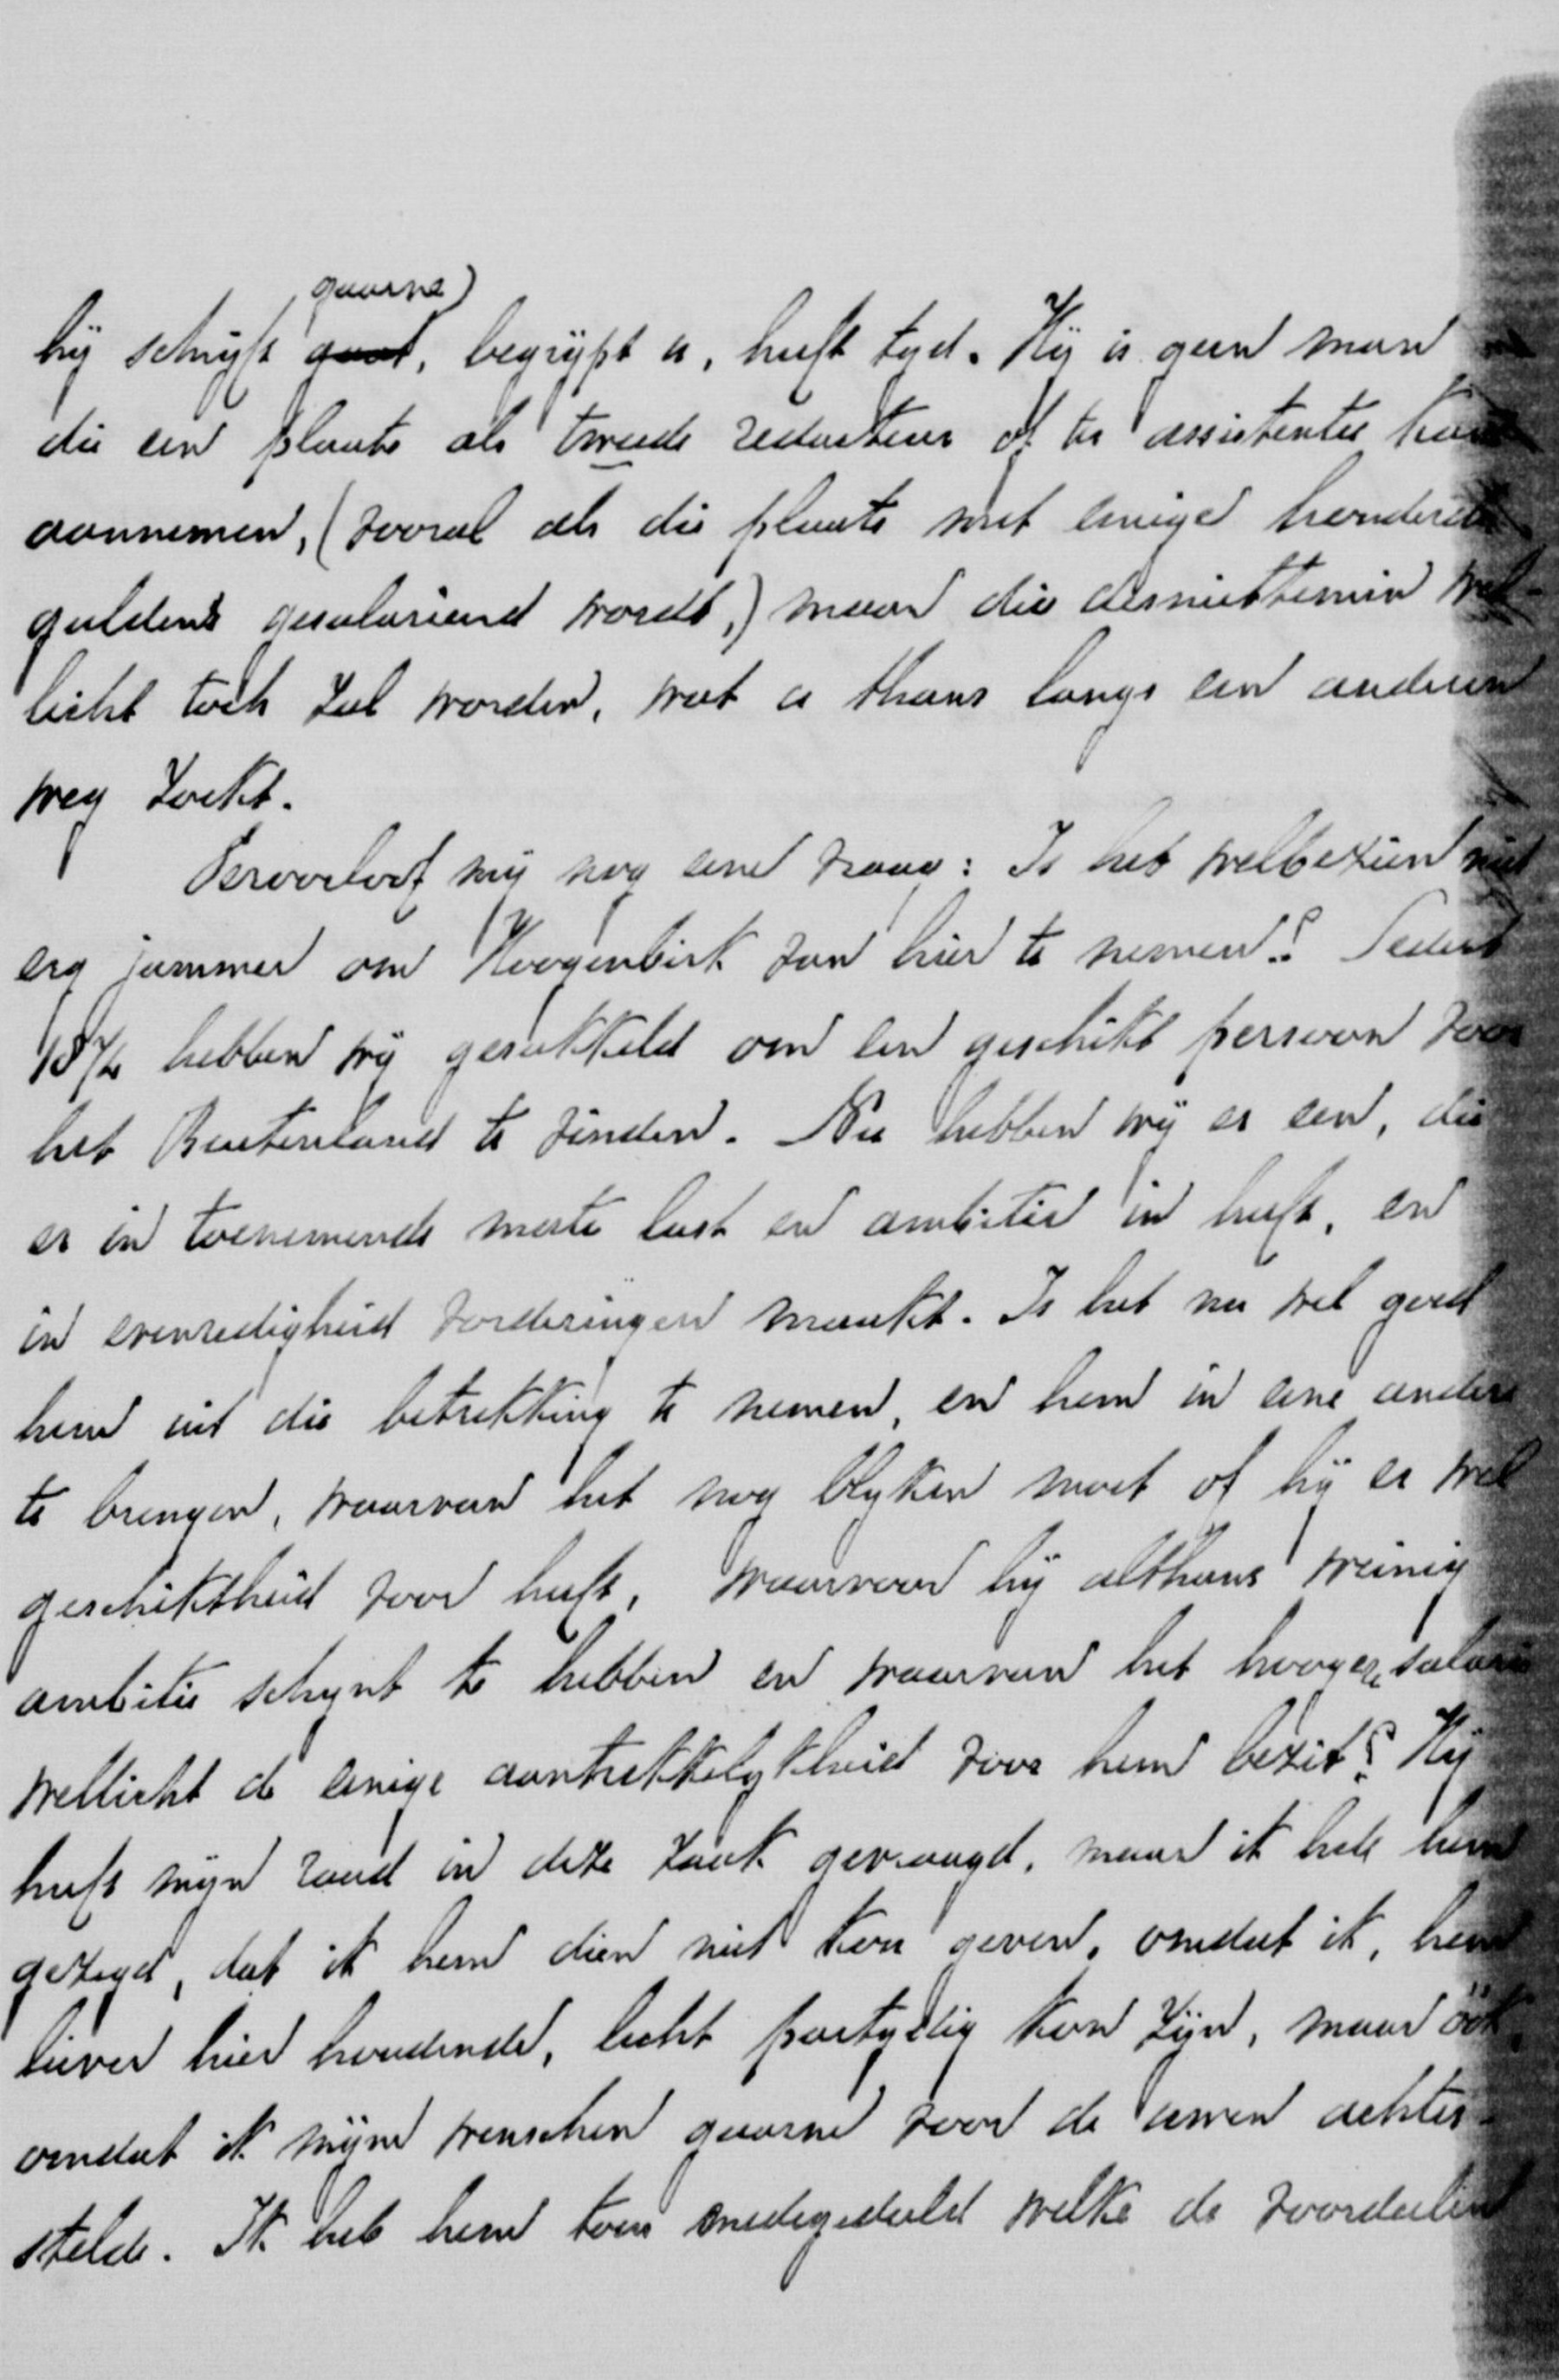 gaarne
hij schrijft goed, begrijpt u, heeft tyd. Hij is geen man
die een plaats als tweede redacteur of ter assistentie kan
aannemen, (vooral als die plaats met eenige honderden
guldens gesalarieerd wordt,) maar die desniettemin wel-
licht toch zal worden, wat u thans langs een anderen
weg zoekt.
Veroorloof mij nog eene vraag: Is het welbezien niet
erg jammer om Hoogenbirk van hier te nemen? Sedert
hebben wij gesukkeld om een geschikt persoon voor
het Buitenland te vinden. Nu hebben wij er een, die
er in toenemende mate lust en ambitie in heeft, en
in evenredigheid vorderingen maakt. Is het nu wel goed
hem uit die betrekking te nemen, en hem in eene andere
te brengen, waarvan het nog blyken moet of hij er wel
geschiktheid voor heeft, waarvoor hij althans weinig
ambitie schynt te hebben en waarvan het hoogere salaris
wellicht de eenige aantrekkelykheid voor hem bezit? Hij
heeft mijn raad in deze zaak gevraagd, maar ik heb hem
gezegd, dat ik hem dien niet kon geven, omdat ik, hem
liever hier houdende, licht partydig kon zijn, maar óók,
omdat ik mijne wenschen gaarne voor de uwen achter-
stelde. Ik heb hem toen medegedeeld welke de voordeelen